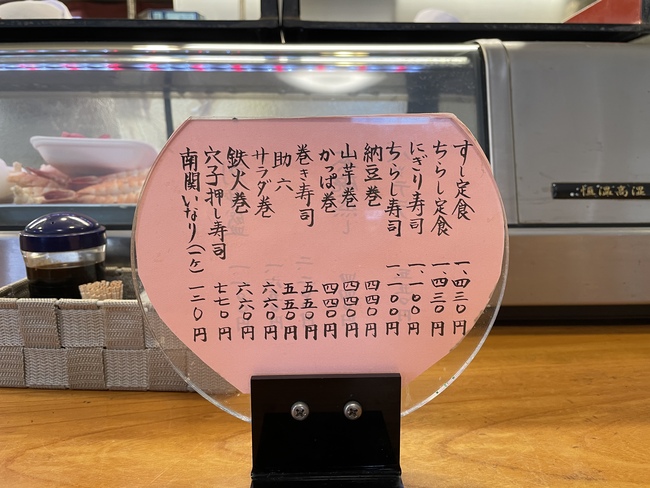 すし定食 一、四三〇円
ちらし定食 一、四三〇円
にぎり寿司 一、一〇〇円
ちらし寿司 一、一〇〇円
納豆巻 四四〇円
山芋巻 四四〇円
かっぱ巻 四四〇円
巻き寿司 五五〇円
助六 五五〇円
サラダ巻 六六〇円
鉄火巻 六六〇円
穴子押し寿司 七七〇円
南関いなり(一ケ) 一二〇円
恒温高湿